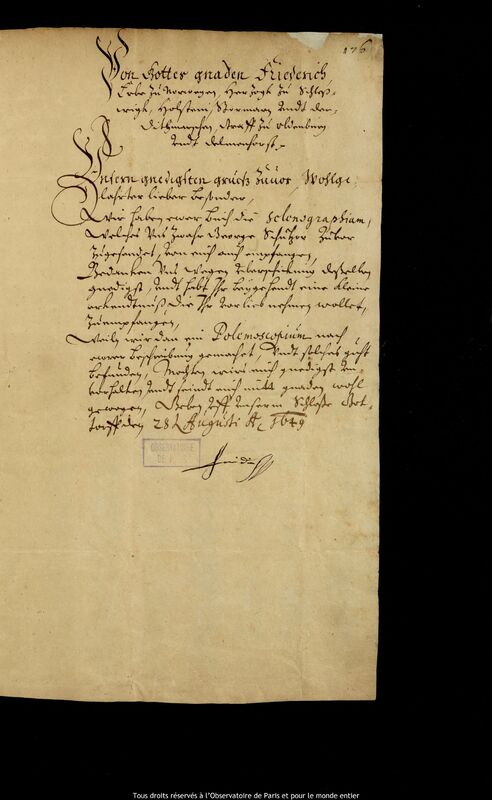 176
Von Gottes gnaden Friederich
Erbe zu Norwegen, Herzogk zu Schleß-
wigk, Holstein, Stormarn undt der
Dithmarschen, Graff zu Oldenburg
undt Delmenhorst.
Unsern gnedigsten grueß zuvor, Wohlge-
lahrter lieber besonder,
Wir haben ewer Buch die Selenographiam,
Welches Uns zwahr George Schultze
zugesandt, von euch auch empfangen,
Bedancken Uns wegen überschickung deßelben
gnedigst, undt habt Ihr beygehendt eine kleine
erkendtnuß, die Ihr vorlieb nehmen wollet,
zu empfangen,
Weiln wir dan ein Polemoscopium nach
ewrer beschreibung gemachet, undt solches guht
befunden, Mochten wirs euch gnedigst un-
verhalten undt seindt euch mitt gnaden wohl
gewogen, Geben uff unserm Schloße Got-
torff den 28 Augusti Aō 1649
OBSERVATOIRE
DE
Friderich
Tous droits réservés à l'Observatoire de Paris et pour le monde entier